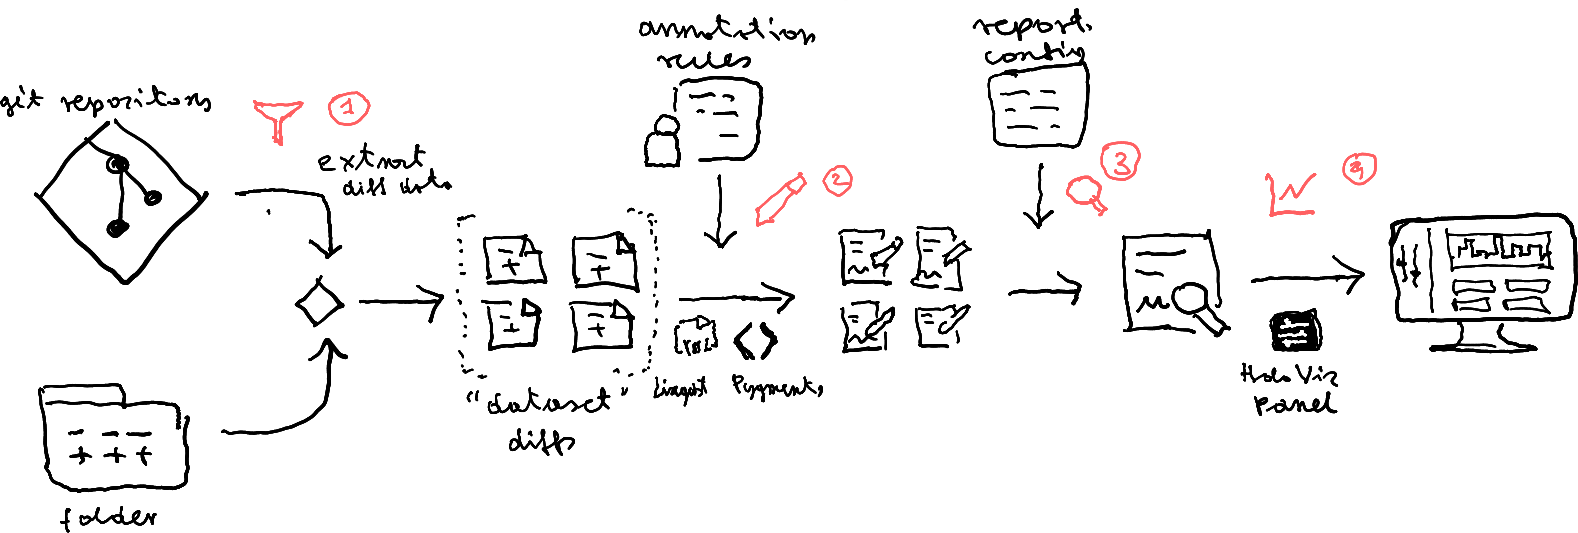 git repository
1
extract
diff data
folder
"dataset"
diffs
annotation
rules
2
Linguist
Pygments
report
config
3
4
HoloViz
Panel